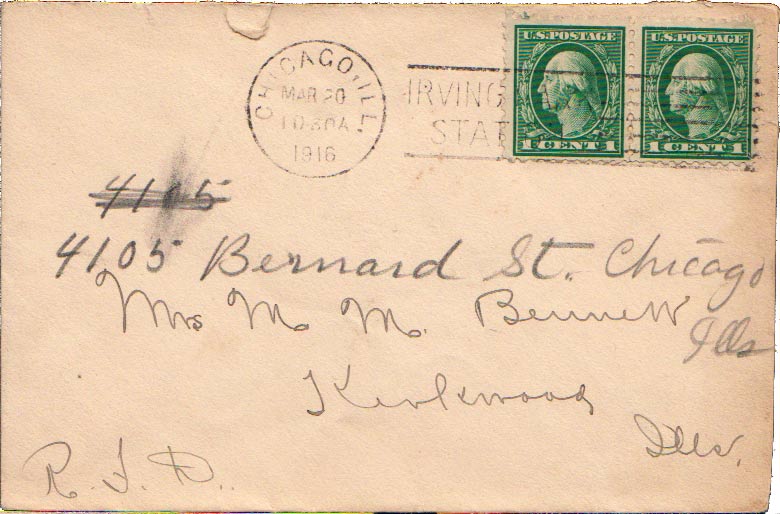 CHICAGO, ILL.
MAR 20
10-30A
1916
IRVING
STAT
U.S. POSTAGE
1 CENT 1
U.S. POSTAGE
1 CENT 1
4105
4105 Bernard St. Chicago
Ills
Mrs M. M. Bennett
Kirkwood
Ills.
R. F. D.